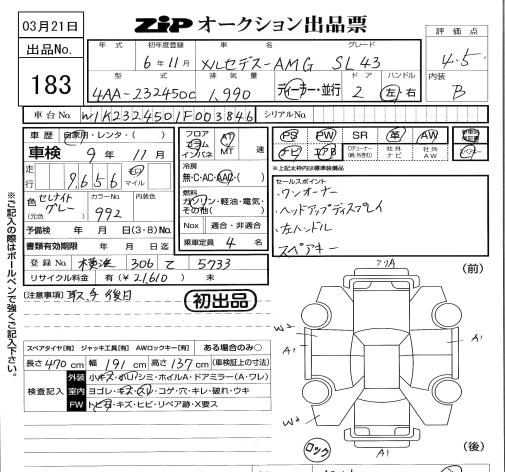 03月21日
ZIP オークション出品票
出品No.
183
年式 初年度登録 車名 グレード 評価点
6年11月 メルセデス-AMG SL43 4.5
型式 排気量 ドア ハンドル 内装
4AA-232450C 1,990 ディーラー・並行 2 左・右 B
車台No. W1K2324501F003846 シリアルNo.
車歴 自家用・レンタ・( )
フロア コラム インパネ AT MT 速
PS PW SR 革 AW
ナビ エアB
車検 9年11月
冷房 無・C・AC・AAC・( )
※上記太枠内は標準装備品
走行 9656 マイル
燃料 ガソリン・軽油・電気・その他( )
セールスポイント
・ワンオーナー
・ヘッドアップディスプレイ
・左ハンドル
スペアキー
色 セレナイトグレー (元色) カラーNo. 992 内装色
予備検 年 月 日(3・8) No.
Nox 適合・非適合
書類有効期限 年 月 日迄
乗車定員 4 名
登録No. 横浜 306 て 5733
リサイクル料金 有(¥21,610) 未
(前)
[注意事項] 取、予後日
初出品
スペアタイヤ[有] ジャッキ工具[有] AWロックキー[有] ある場合のみ○
長さ 470 cm 幅 191 cm 高さ 137 cm (車検証上の寸法)
検査記入
外装 小キズ・小ハシミ・ホイルA・ドアミラー(A・ワレ)
室内 ヨゴレ・キズ・スレ・コゲ・穴・キレ・破れ・ウキ
FW トビ石・キズ・ヒビ・リペア跡・X要ス
A1
W2
A1
A1
W2
A1
ロック
(後)
※ご記入の際はボールペンで強くご記入下さい。